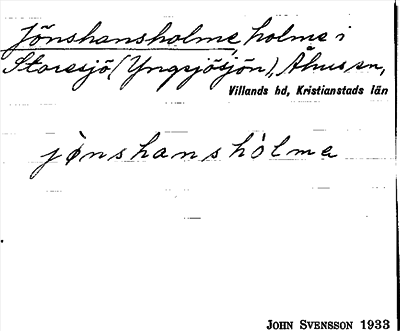 Jönshansholme, holme i
Storesjö (Yngsjösjön), Åhus sn,
Villands hd, Kristianstads län
jønshanshòlmə
JOHN SVENSSON 1933